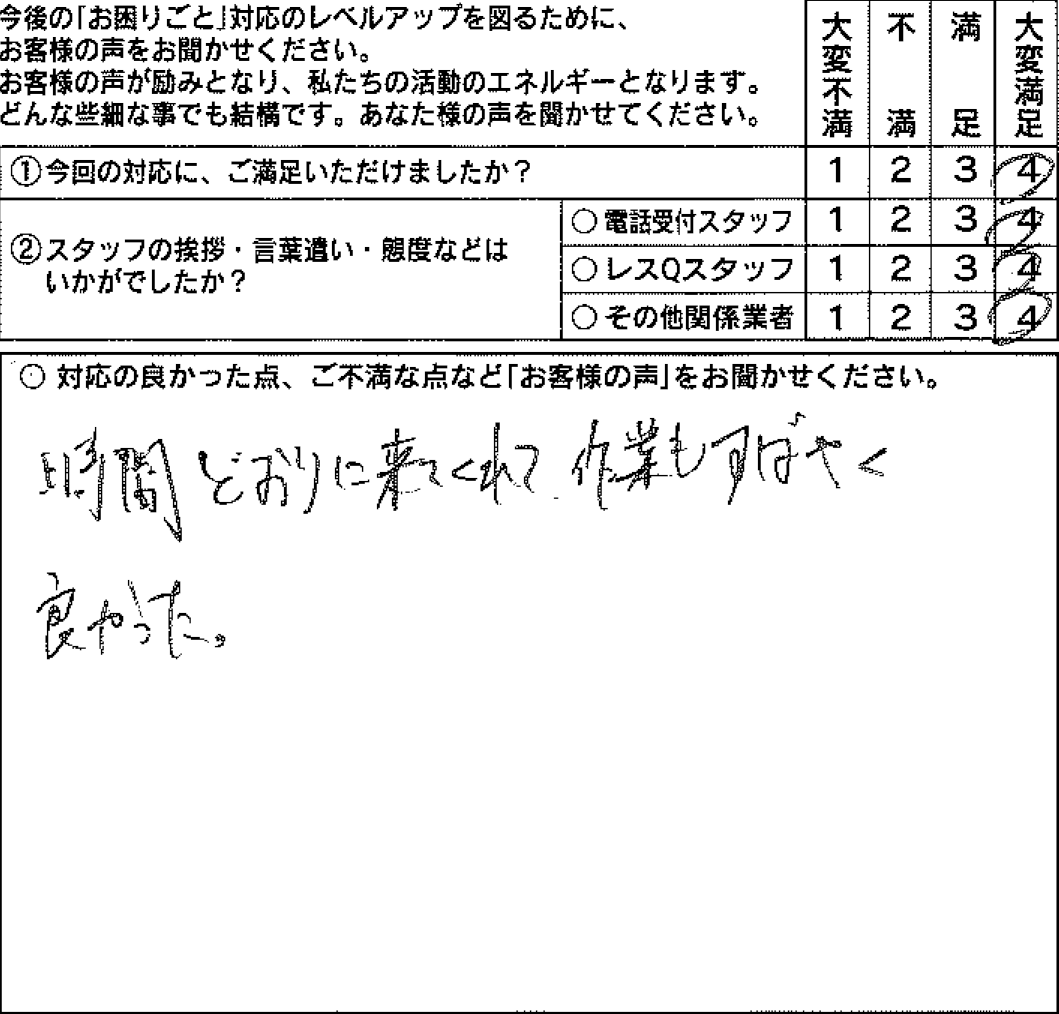 今後の｢お困りごと｣対応のレベルアップを図るために、
お客様の声をお聞かせください。
お客様の声が励みとなり、私たちの活動のエネルギーとなります。
どんな些細な事でも結構です。あなた様の声を聞かせてください。
大変不満 不満 満足 大変満足
①今回の対応に、ご満足いただけましたか？ 1 2 3 4
②スタッフの挨拶・言葉遣い・態度などは
いかがでしたか？
○電話受付スタッフ 1 2 3 4
○レスQスタッフ 1 2 3 4
○その他関係業者 1 2 3 4
○ 対応の良かった点、ご不満な点など｢お客様の声｣をお聞かせください。
時間どおりに来てくれて 作業もすばやく
良かった。